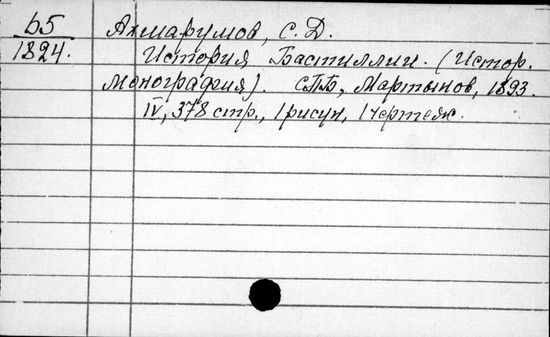 Б5
1824.
Ахшарумов, С. Д.
История Бастиллии. (Истор.
монография). СПБ, Мартынов, 1893.
IV, 378 стр., 1 рисун, 1 чертеж.